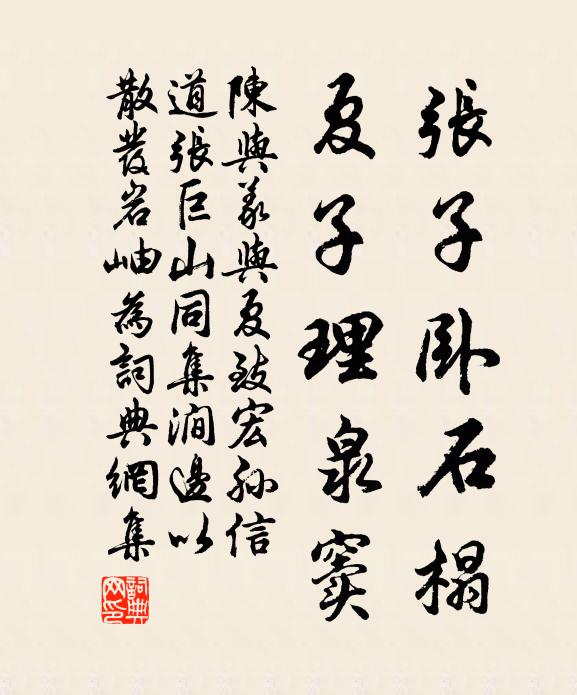 張子卧石榻
夏子理泉窦
陳與義與夏致宏孫信
道張巨山同集澗邊以
散發岩岫為詞典網集
詞典
网印